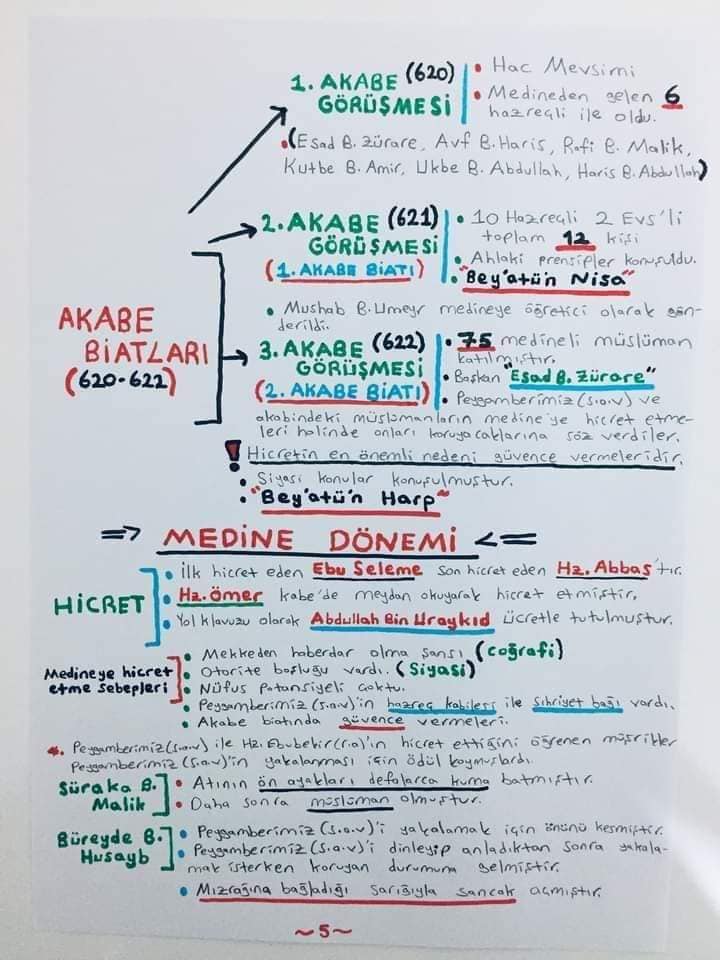 1. AKABE (620)
GÖRÜŞMESİ
• Hac Mevsimi
• Medineden gelen 6
hazreçli ile oldu.
•(Esad B. Zürare, Avf B. Haris, Rafi B. Malik,
Kutbe B. Amir, Ukbe B. Abdullah, Haris B. Abdullah)
AKABE
BİATLARI
(620-622)
2. AKABE (621)
GÖRÜŞMESİ
(1. AKABE BİATI)
• 10 Hazreçli 2 Evs'li
toplam 12 kişi
• Ahlaki prensipler konuşuldu.
• "Bey'atü'n Nisa"
• Mushab B. Umeyr medineye öğretici olarak gön-
derildi.
3. AKABE (622)
GÖRÜŞMESİ
(2. AKABE BİATI)
• 75 medineli müslüman
katılmıştır.
• Başkan "Esad B. Zürare"
• Peygamberimiz (s.a.v) ve
akabindeki müslümanların medine'ye hicret etme-
leri halinde onları koruyacaklarına söz verdiler.
! Hicretin en önemli nedeni güvence vermeleridir.
• Siyasi konular konuşulmuştur.
• "Bey'atü'n Harp"
=> MEDİNE DÖNEMİ <=
HİCRET
• İlk hicret eden Ebu Seleme son hicret eden Hz. Abbas'tır.
• Hz. Ömer kabe'de meydan okuyarak hicret etmiştir.
• Yol klavuzu olarak Abdullah Bin Uraykıd ücretle tutulmuştur.
Medineye hicret
etme sebepleri
• Mekkeden haberdar olma şansı (coğrafi)
• Otorite boşluğu vardı. (Siyasi)
• Nüfus potansiyeli çoktu.
• Peygamberimiz (s.a.v)'in hazreç kabilesi ile sıhriyet bağı vardı.
• Akabe biatında güvence vermeleri.
* Peygamberimiz (s.a.v) ile Hz. Ebubekir (r.a)'ın hicret ettiğini öğrenen müşrikler
Peygamberimiz (s.a.v)'in yakalanması için ödül koymuşlardı.
Süraka B.
Malik
• Atının ön ayakları defalarca kuma batmıştır.
• Daha sonra müslüman olmuştur.
Büreyde B.
Husayb
• Peygamberimiz (s.a.v)'i yakalamak için önünü kesmiştir.
• Peygamberimiz (s.a.v)'i dinleyip anladıktan sonra yakala-
mak isterken koruyan durumuna gelmiştir.
• Mızrağına bağladığı sarığıyla sancak açmıştır.
~5~